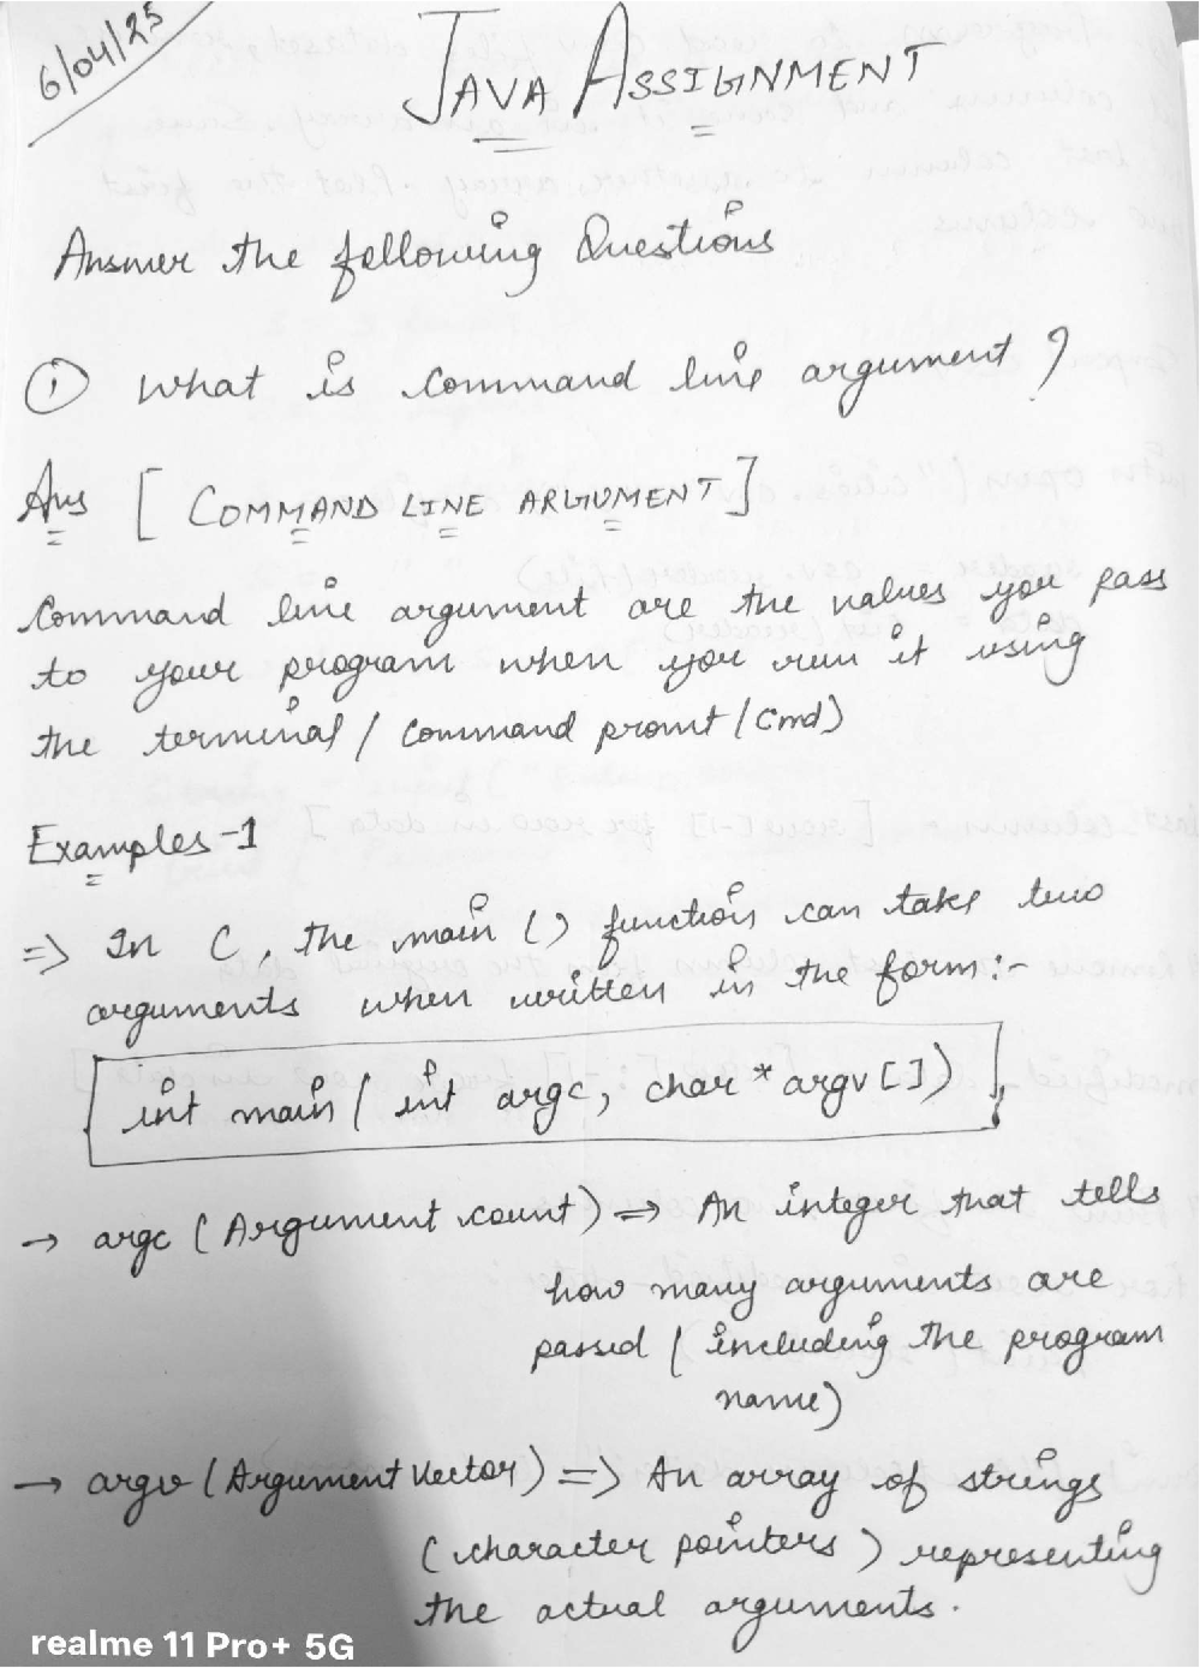 6/04/25
JAVA ASSIGNMENT
Answer the following Questions
① What is Command line argument ?
Ans [ COMMAND LINE ARGUMENT ]
Command line argument are the values you pass
to your program when you run it using
the terminal / Command promt (cmd)
Examples -1
=> In C, the main () function can take two
arguments when written in the form :-
int main ( int argc, char * argv [ ] )
→ argc ( Argument count ) => An integer that tells
how many arguments are
passed ( including the program
name)
→ argv ( Argument Vector ) => An array of strings
( character pointers ) representing
the actual arguments.
realme 11 Pro+ 5G